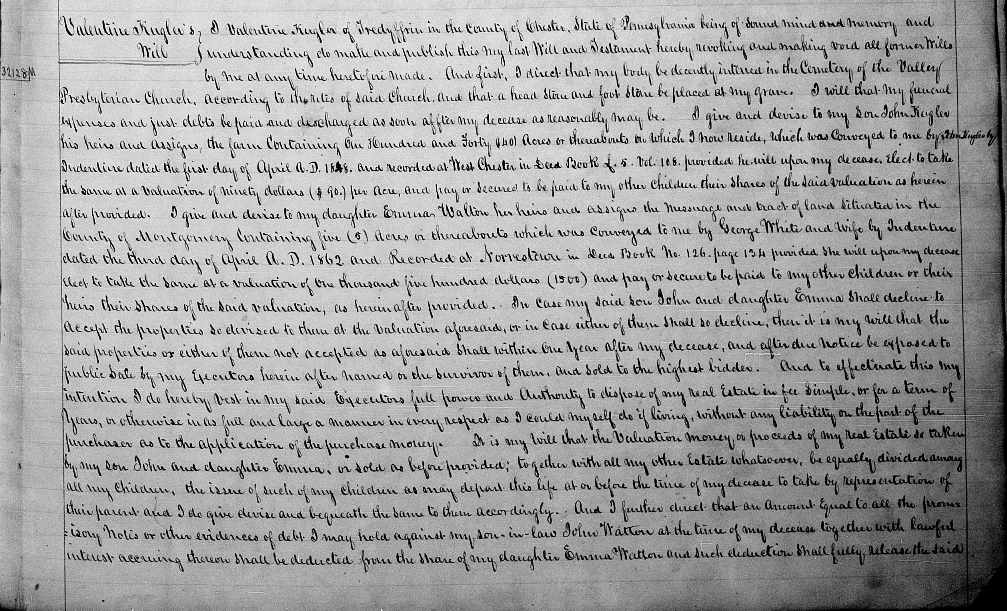 Valentine Kugler's } I Valentine Kugler of Tredyffrin in the County of Chester, State of Pennsylvania being of sound mind and memory and
Will } understanding do make and publish this my last Will and Testament hereby revoking and making void all former Wills
32128M
by me at any time heretofore made. And first, I direct that my body be decently interred in the Cemetery of the Valley
Presbyterian Church, according to the rites of said Church, and that a head stone and foot stone be placed at my grave. I will that my funeral
expenses and just debts be paid and discharged as soon after my decease as reasonably may be. I give and devise to my Son John Kugler
his heirs and assigns, the farm Containing One Hundred and Forty (140) Acres or thereabouts on which I now reside, which was conveyed to me by John Kugler by
Indenture dated the first day of April A.D. 1848. and recorded at West Chester in Deed Book 5. Vol. 108. provided he will upon my decease, elect to take
the same at a valuation of ninety dollars ($90.) per Acre, and pay or secured to be paid to my other children their shares of the said valuation as herein
after provided. I give and devise to my daughter Emma Walton her heirs and assigns the Messuage and tract of land situated in the
County of Montgomery Containing five (5) Acres or thereabouts which was conveyed to me by George White and Wife by Indenture
dated the third day of April A.D. 1862 and Recorded at Norristown in Deed Book No. 126. page 134 provided she will upon my decease
elect to take the same at a valuation of one thousand five hundred dollars (1500) and pay or secure to be paid to my other children or their
heirs their shares of the said valuation, as hereinafter provided. In case my said son John and daughter Emma shall decline to
accept the properties so devised to them at the valuation aforesaid, or in case either of them shall so decline, then it is my will that the
said properties or either of them not accepted as aforesaid shall within One Year after my decease, and after due notice be exposed to
public Sale by my Executors herein after named or the survivor of them, and sold to the highest bidder. And to effectuate this my
intention I do hereby vest in my said Executors full power and Authority to dispose of my real Estate in fee Simple, or for a term of
Years, or otherwise in as full and large a manner in every respect as I could myself do if living, without any liability on the part of the
purchaser as to the application of the purchase money. It is my will that the Valuation money or proceeds of my real Estate so taken
by my son John and daughter Emma, or sold as before provided; together with all my other Estate whatsoever, be equally divided among
all my Children, the issue of such of my Children as may depart this life at or before the time of my decease to take by representation of
their parent and I do give devise and bequeath the same to them accordingly. And I further direct that an Amount Equal to all the prom=
=isory Notes or other evidences of debt I may hold against my son-in-law John Walton at the time of my decease together with lawful
interest accruing thereon shall be deducted from the share of my daughter Emma Walton and such deduction shall fully release the said